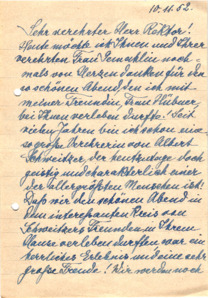 10.11.52.
Sehr verehrter Herr Rektor!
Heute möchte ich Ihnen und Ihrer
verehrten Frau Gemahlin noch
mals von Herzen danken für den
so schönen Abend, den ich mit
meiner Freundin, Frau Hübner,
bei Ihnen verleben durfte! Seit
vielen Jahren bin ich schon eine
so große Verehrerin von Albert
Schweitzer, der heutzutage doch
geistig und charakterlich einer
der allergrößten Menschen ist!
Daß wir den schönen Abend in
dem interessanten Kreis von
Schweitzers Freunden in Ihrem
Hause verleben durften, war ein
herrliches Erlebnis und eine sehr
große Freude! Wir werden noch